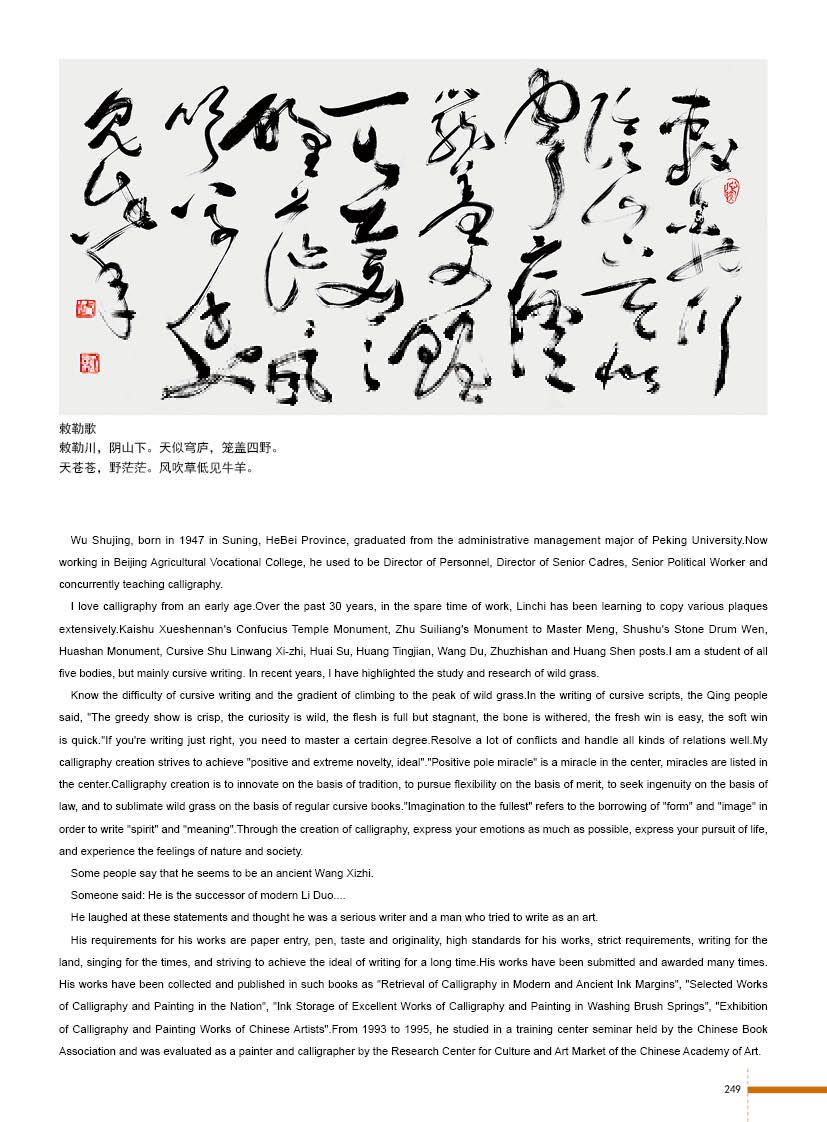 敕勒歌
敕勒川，阴山下。天似穹庐，笼盖四野。
天苍苍，野茫茫。风吹草低见牛羊。
Wu Shujing, born in 1947 in Suning, HeBei Province, graduated from the administrative management major of Peking University.Now
working in Beijing Agricultural Vocational College, he used to be Director of Personnel, Director of Senior Cadres, Senior Political Worker and
concurrently teaching calligraphy.
I love calligraphy from an early age.Over the past 30 years, in the spare time of work, Linchi has been learning to copy various plaques
extensively.Kaishu Xueshennan's Confucius Temple Monument, Zhu Suiliang's Monument to Master Meng, Shushu's Stone Drum Wen,
Huashan Monument, Cursive Shu Linwang Xi-zhi, Huai Su, Huang Tingjian, Wang Du, Zhuzhishan and Huang Shen posts.I am a student of all
five bodies, but mainly cursive writing. In recent years, I have highlighted the study and research of wild grass.
Know the difficulty of cursive writing and the gradient of climbing to the peak of wild grass.In the writing of cursive scripts, the Qing people
said, "The greedy show is crisp, the curiosity is wild, the flesh is full but stagnant, the bone is withered, the fresh win is easy, the soft win
is quick."If you're writing just right, you need to master a certain degree.Resolve a lot of conflicts and handle all kinds of relations well.My
calligraphy creation strives to achieve "positive and extreme novelty, ideal"."Positive pole miracle" is a miracle in the center, miracles are listed in
the center.Calligraphy creation is to innovate on the basis of tradition, to pursue flexibility on the basis of merit, to seek ingenuity on the basis of
law, and to sublimate wild grass on the basis of regular cursive books."Imagination to the fullest" refers to the borrowing of "form" and "image" in
order to write "spirit" and "meaning".Through the creation of calligraphy, express your emotions as much as possible, express your pursuit of life,
and experience the feelings of nature and society.
Some people say that he seems to be an ancient Wang Xizhi.
Someone said: He is the successor of modern Li Duo....
He laughed at these statements and thought he was a serious writer and a man who tried to write as an art.
His requirements for his works are paper entry, pen, taste and originality, high standards for his works, strict requirements, writing for the
land, singing for the times, and striving to achieve the ideal of writing for a long time.His works have been submitted and awarded many times.
His works have been collected and published in such books as "Retrieval of Calligraphy in Modern and Ancient Ink Margins", "Selected Works
of Calligraphy and Painting in the Nation", "Ink Storage of Excellent Works of Calligraphy and Painting in Washing Brush Springs", "Exhibition
of Calligraphy and Painting Works of Chinese Artists".From 1993 to 1995, he studied in a training center seminar held by the Chinese Book
Association and was evaluated as a painter and calligrapher by the Research Center for Culture and Art Market of the Chinese Academy of Art.
249